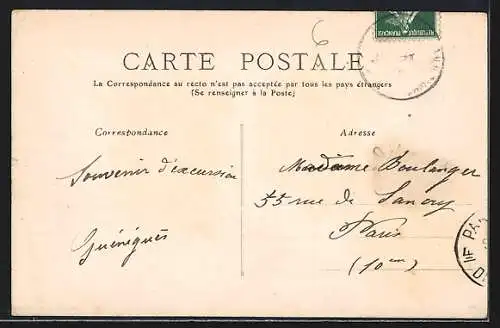 6
RÉPUBLIQUE FRANÇAISE
CARTE POSTALE
La Correspondance au recto n'est pas acceptée par tous les pays étrangers
(Se renseigner à la Poste)
Correspondance
Adresse
Souvenir d'excursion
Madame Boulanger
55 rue de Lancry
Paris
(10em)
PA